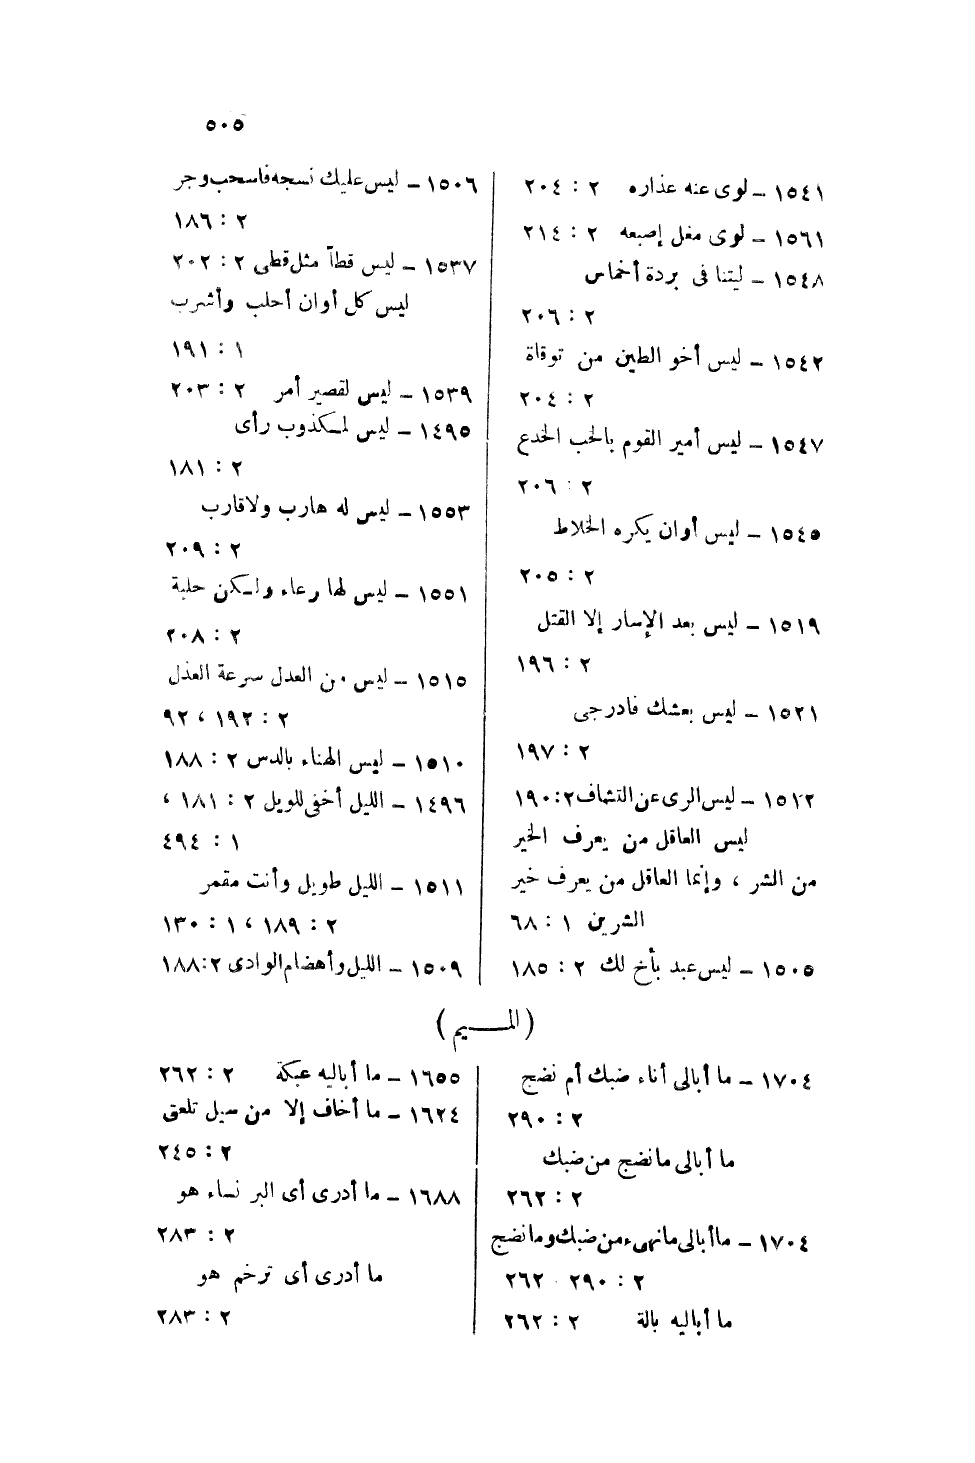 ٥٠٥
١٥٤١ – لوى عنه عذاره ٢ : ٢٠٤
١٥٦١ – لوى مغل إصبعه ٢ : ٢١٤
١٥٤٨ – ليتنا فى بردة أخماس
٢ : ٢٠٦
١٥٤٢ – ليس أخو الطين من توقاة
٢ : ٢٠٤
١٥٤٧ – ليس أمير القوم بالخب الخدع
٢ : ٢٠٦
١٥٤٥ – ليس أوان يكره الخلاط
٢ : ٢٠٥
١٥١٩ – ليس بعد الإسار إلا القتل
٢ : ١٩٦
١٥٢١ – ليس بعشك فادرجى
٢ : ١٩٧
١٥١٢ – ليس الرى عن التشاف ٢ : ١٩٠
ليس العاقل من يعرف الخير
من الشر ، وإنما العاقل من يعرف خير
الشرين ١ : ٦٨
١٥٠٥ – ليس عبد بأخ لك ٢ : ١٨٥
١٥٠٦ – ليس عليك نسجه فاسحب وجر
٢ : ١٨٦
١٥٣٧ – ليس قطاً مثل قطى ٢ : ٢٠٢
ليس كل أوان أحلب وأشرب
١ : ١٩١
١٥٣٩ – ليس لقصير أمر ٢ : ٢٠٣
١٤٩٥ – ليس لمكذوب رأى
٢ : ١٨١
١٥٥٣ – ليس له هارب ولا قارب
٢ : ٢٠٩
١٥٥١ – ليس لها رعاء ولكن حلبة
٢ : ٢٠٨
١٥١٥ – ليس من العدل سرعة العذل
٢ : ١٩٢ ، ٩٢
١٥١٠ – ليس الهناء بالدس ٢ : ١٨٨
١٤٩٦ – الليل أخفى للويل ٢ : ١٨١ ،
١ : ٤٩٤
١٥١١ – الليل طويل وأنت مقمر
٢ : ١٨٩ ، ١ : ١٣٠
١٥٠٩ – الليل وأهضام الوادى ٢ : ١٨٨
(الميم)
١٧٠٤ – ما أبالى أناء ضبك أم نضج
٢ : ٢٩٠
ما أبالى ما نضج من ضبك
٢ : ٢٦٢
١٧٠٤ – ما أبالى ما نهىء من ضبك وما نضج
٢ : ٢٩٠ ٢٦٢
ما أباليه بالة ٢ : ٢٦٢
١٦٥٥ – ما أباليه عبكة ٢ : ٢٦٢
١٦٢٤ – ما أخاف إلا من سيل تلعتى
٢ : ٢٤٥
١٦٨٨ – ما أدرى أى البرنساء هو
٢ : ٢٨٣
ما أدرى أى ترخم هو
٢ : ٢٨٣